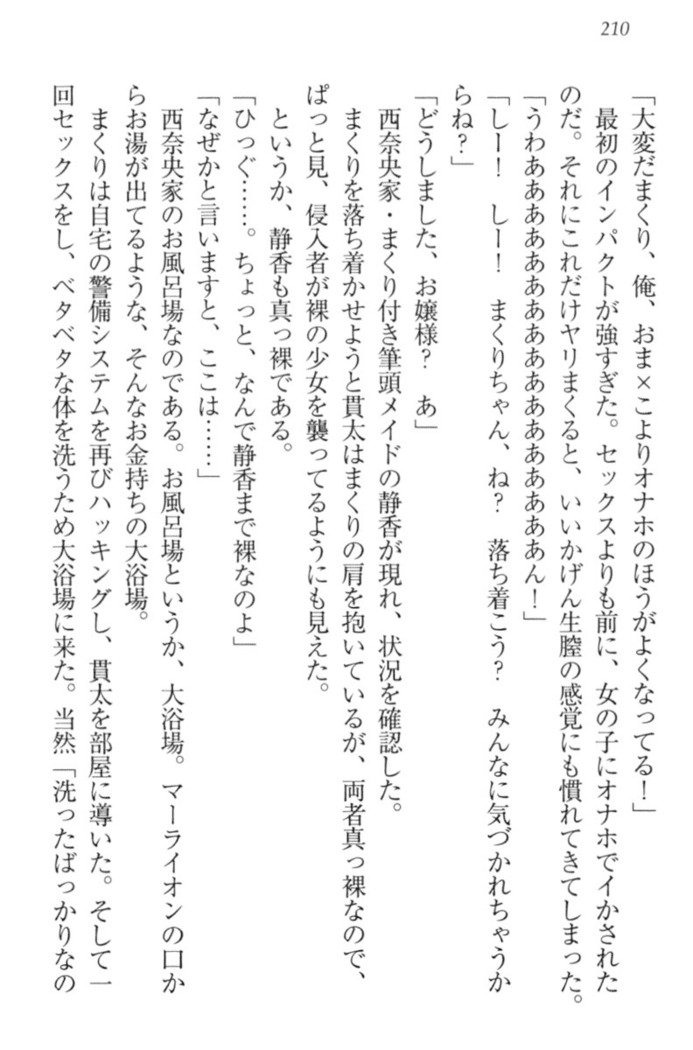 210
「大変だまくり、俺、おま×こよりオナホのほうがよくなってる！」
最初のインパクトが強すぎた。セックスよりも前に、女の子にオナホでイかされた
のだ。それにこれだけヤリまくると、いいかげん生膣の感覚にも慣れてきてしまった。
「うわあああああああああああああああああああん！」
「しー！　しー！　まくりちゃん、ね？　落ち着こう？　みんなに気づかれちゃうか
らね？」
「どうしました、お嬢様？　あ」
西奈央家・まくり付き筆頭メイドの静香が現れ、状況を確認した。
まくりを落ち着かせようと貫太はまくりの肩を抱いているが、両者真っ裸なので、
ぱっと見、侵入者が裸の少女を襲ってるようにも見えた。
というか、静香も真っ裸である。
「ひっぐ……。ちょっと、なんで静香まで裸なのよ」
「なぜかと言いますと、ここは……」
西奈央家のお風呂場なのである。お風呂場というか、大浴場。マーライオンの口か
らお湯が出てるような、そんなお金持ちの大浴場。
まくりは自宅の警備システムを再びハッキングし、貫太を部屋に導いた。そして一
回セックスをし、ベタベタな体を洗うため大浴場に来た。当然「洗ったばっかりなの